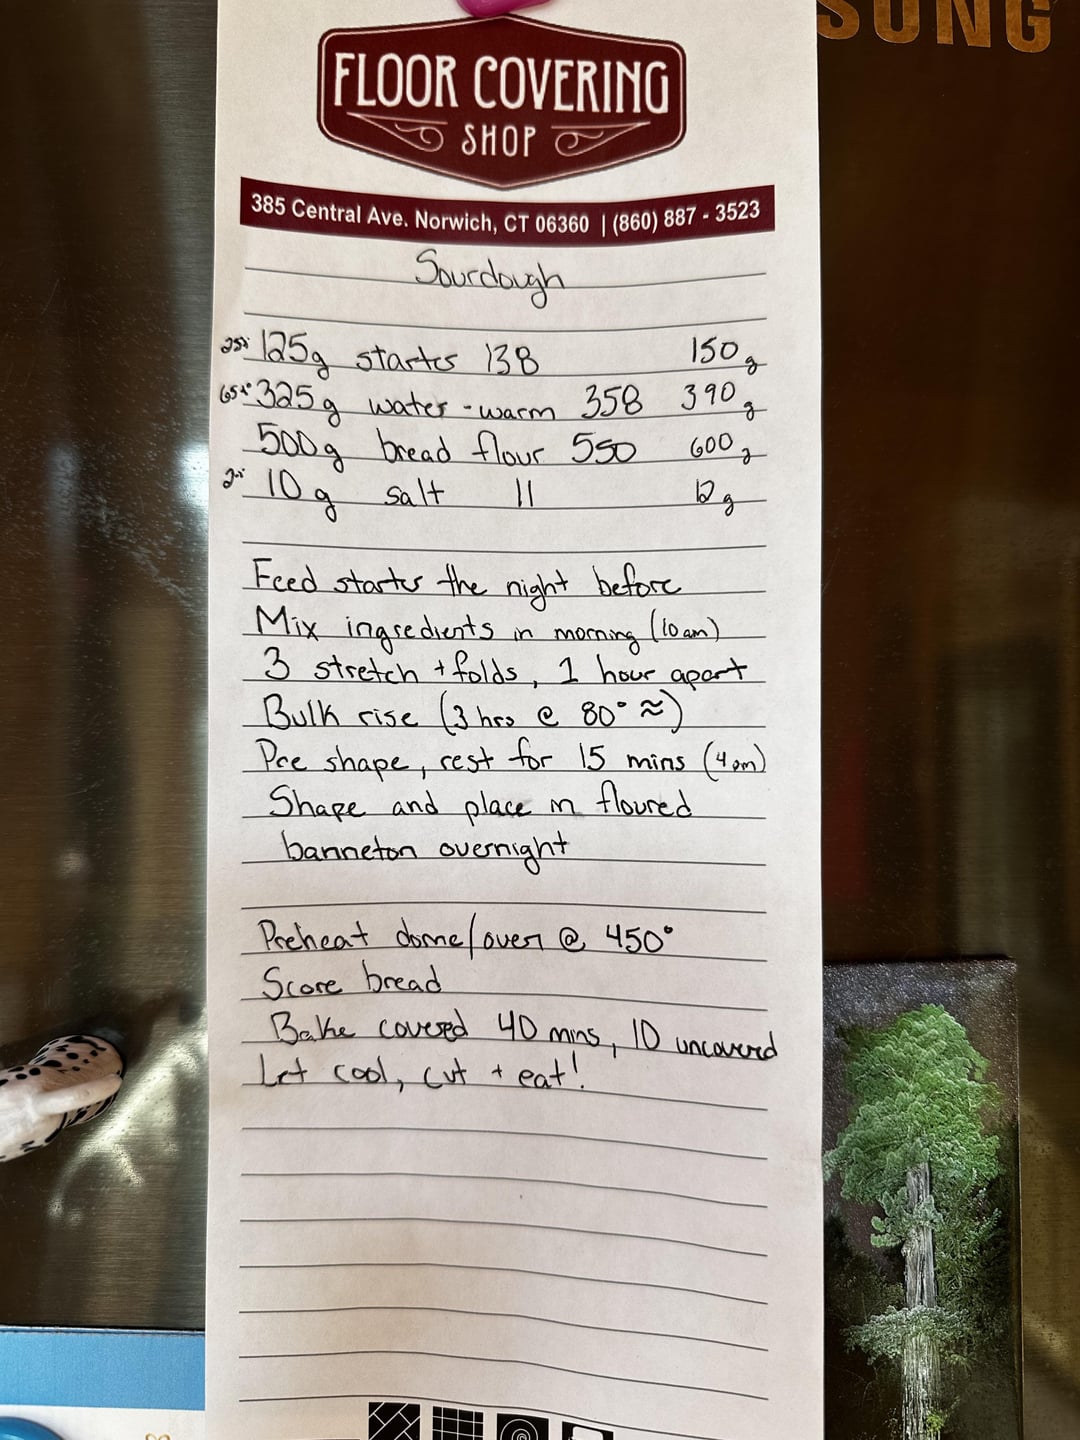 SUNG
FLOOR COVERING
SHOP
385 Central Ave. Norwich, CT 06360 | (860) 887 - 3523
Sourdough
25% 125g starter 138 150g
65% 325g water - warm 358 390g
500g bread flour 550 600g
2% 10g salt 11 12g
Feed starter the night before
Mix ingredients in morning (10am)
3 stretch + folds, 1 hour apart
Bulk rise (3 hrs @ 80° ≈)
Pre shape, rest for 15 mins (4pm)
Shape and place in floured
banneton overnight
Preheat dome/oven @ 450°
Score bread
Bake covered 40 mins, 10 uncovered
Let cool, cut + eat!